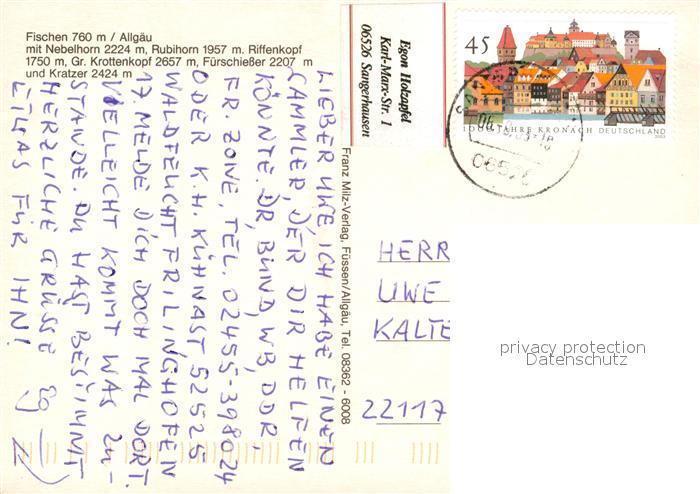 Fischen 760 m / Allgäu
mit Nebelhorn 2224 m, Rubihorn 1957 m. Riffenkopf
1750 m, Gr. Krottenkopf 2657 m, Fürschießer 2207 m
und Kratzer 2424 m
LIEBER UWE ICH HABE EINEN
SAMMLER, DER DIR HELFEN
KÖNNTE. DR, BUND, WB, DDR,
FR. ZONE, TEL. 02455-398024
ODER K.H. KÜHNAST 52525
WALDFEUCHT FRILINGHOFEN
17. MELDE DICH DOCH MAL DORT.
VIELLEICHT KOMMT WAS ZU-
STANDE. DU HAST BESTIMMT
ETWAS FÜR IHN!
HERZLICHE GRÜSSE
Franz Milz-Verlag, Füssen/Allgäu, Tel. 08362 - 6008
Egon Holzapfel
Karl-Marx-Str. 1
06526 Sangerhausen
45
1000 JAHRE KRONACH DEUTSCHLAND
2003
06526
HERR
UWE
KALTE
22117
privacy protection
Datenschutz